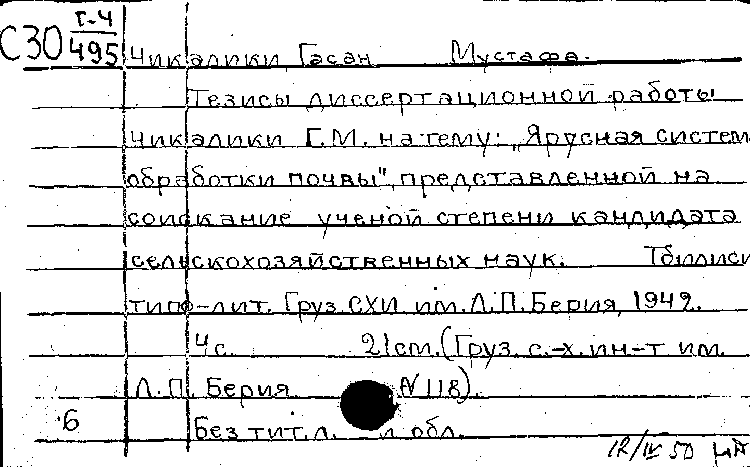 Г-4
С30 495
Чикалики, Гасан Мустафа.
Тезисы диссертационной работы
Чикалики Г.М. на тему: "Ярусная систем
обработки почвы", представленной на
соискание ученой степени кандидата
сельскохозяйственных наук. Тбилиси
типо-лит. Груз. СХИ им. Л.П. Берия, 1949.
4с. 21см. (Груз. с.-х. ин-т им.
Л.П. Берия N 118).
Без тит. л. и обл.
6
12/IV 50